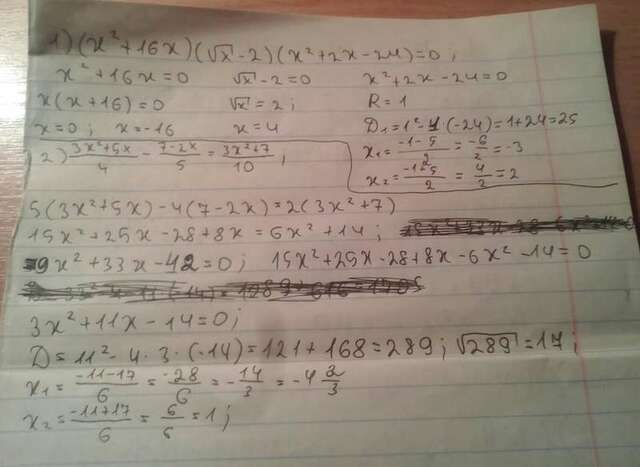 1) (x²+16x)(√x-2)(x²+2x-24)=0;
x²+16x=0 √x-2=0 x²+2x-24=0
x(x+16)=0 √x=2; R=1
x=0; x=-16 x=4 D₁=1²-1·(-24)=1+24=25
x₁=(-1-5)/2=-6/2=-3
x₂=(-1+5)/2=4/2=2
2) (3x²+5x)/4-(7-2x)/5=(3x²+7)/10;
5(3x²+5x)-4(7-2x)=2(3x²+7)
15x²+25x-28+8x=6x²+14;
9x²+33x-42=0; 15x²+25x-28+8x-6x²-14=0
3x²+11x-14=0;
D=11²-4·3·(-14)=121+168=289; √289=17;
x₁=(-11-17)/6=-28/6=-14/3=-4 2/3
x₂=(-11+17)/6=6/6=1;